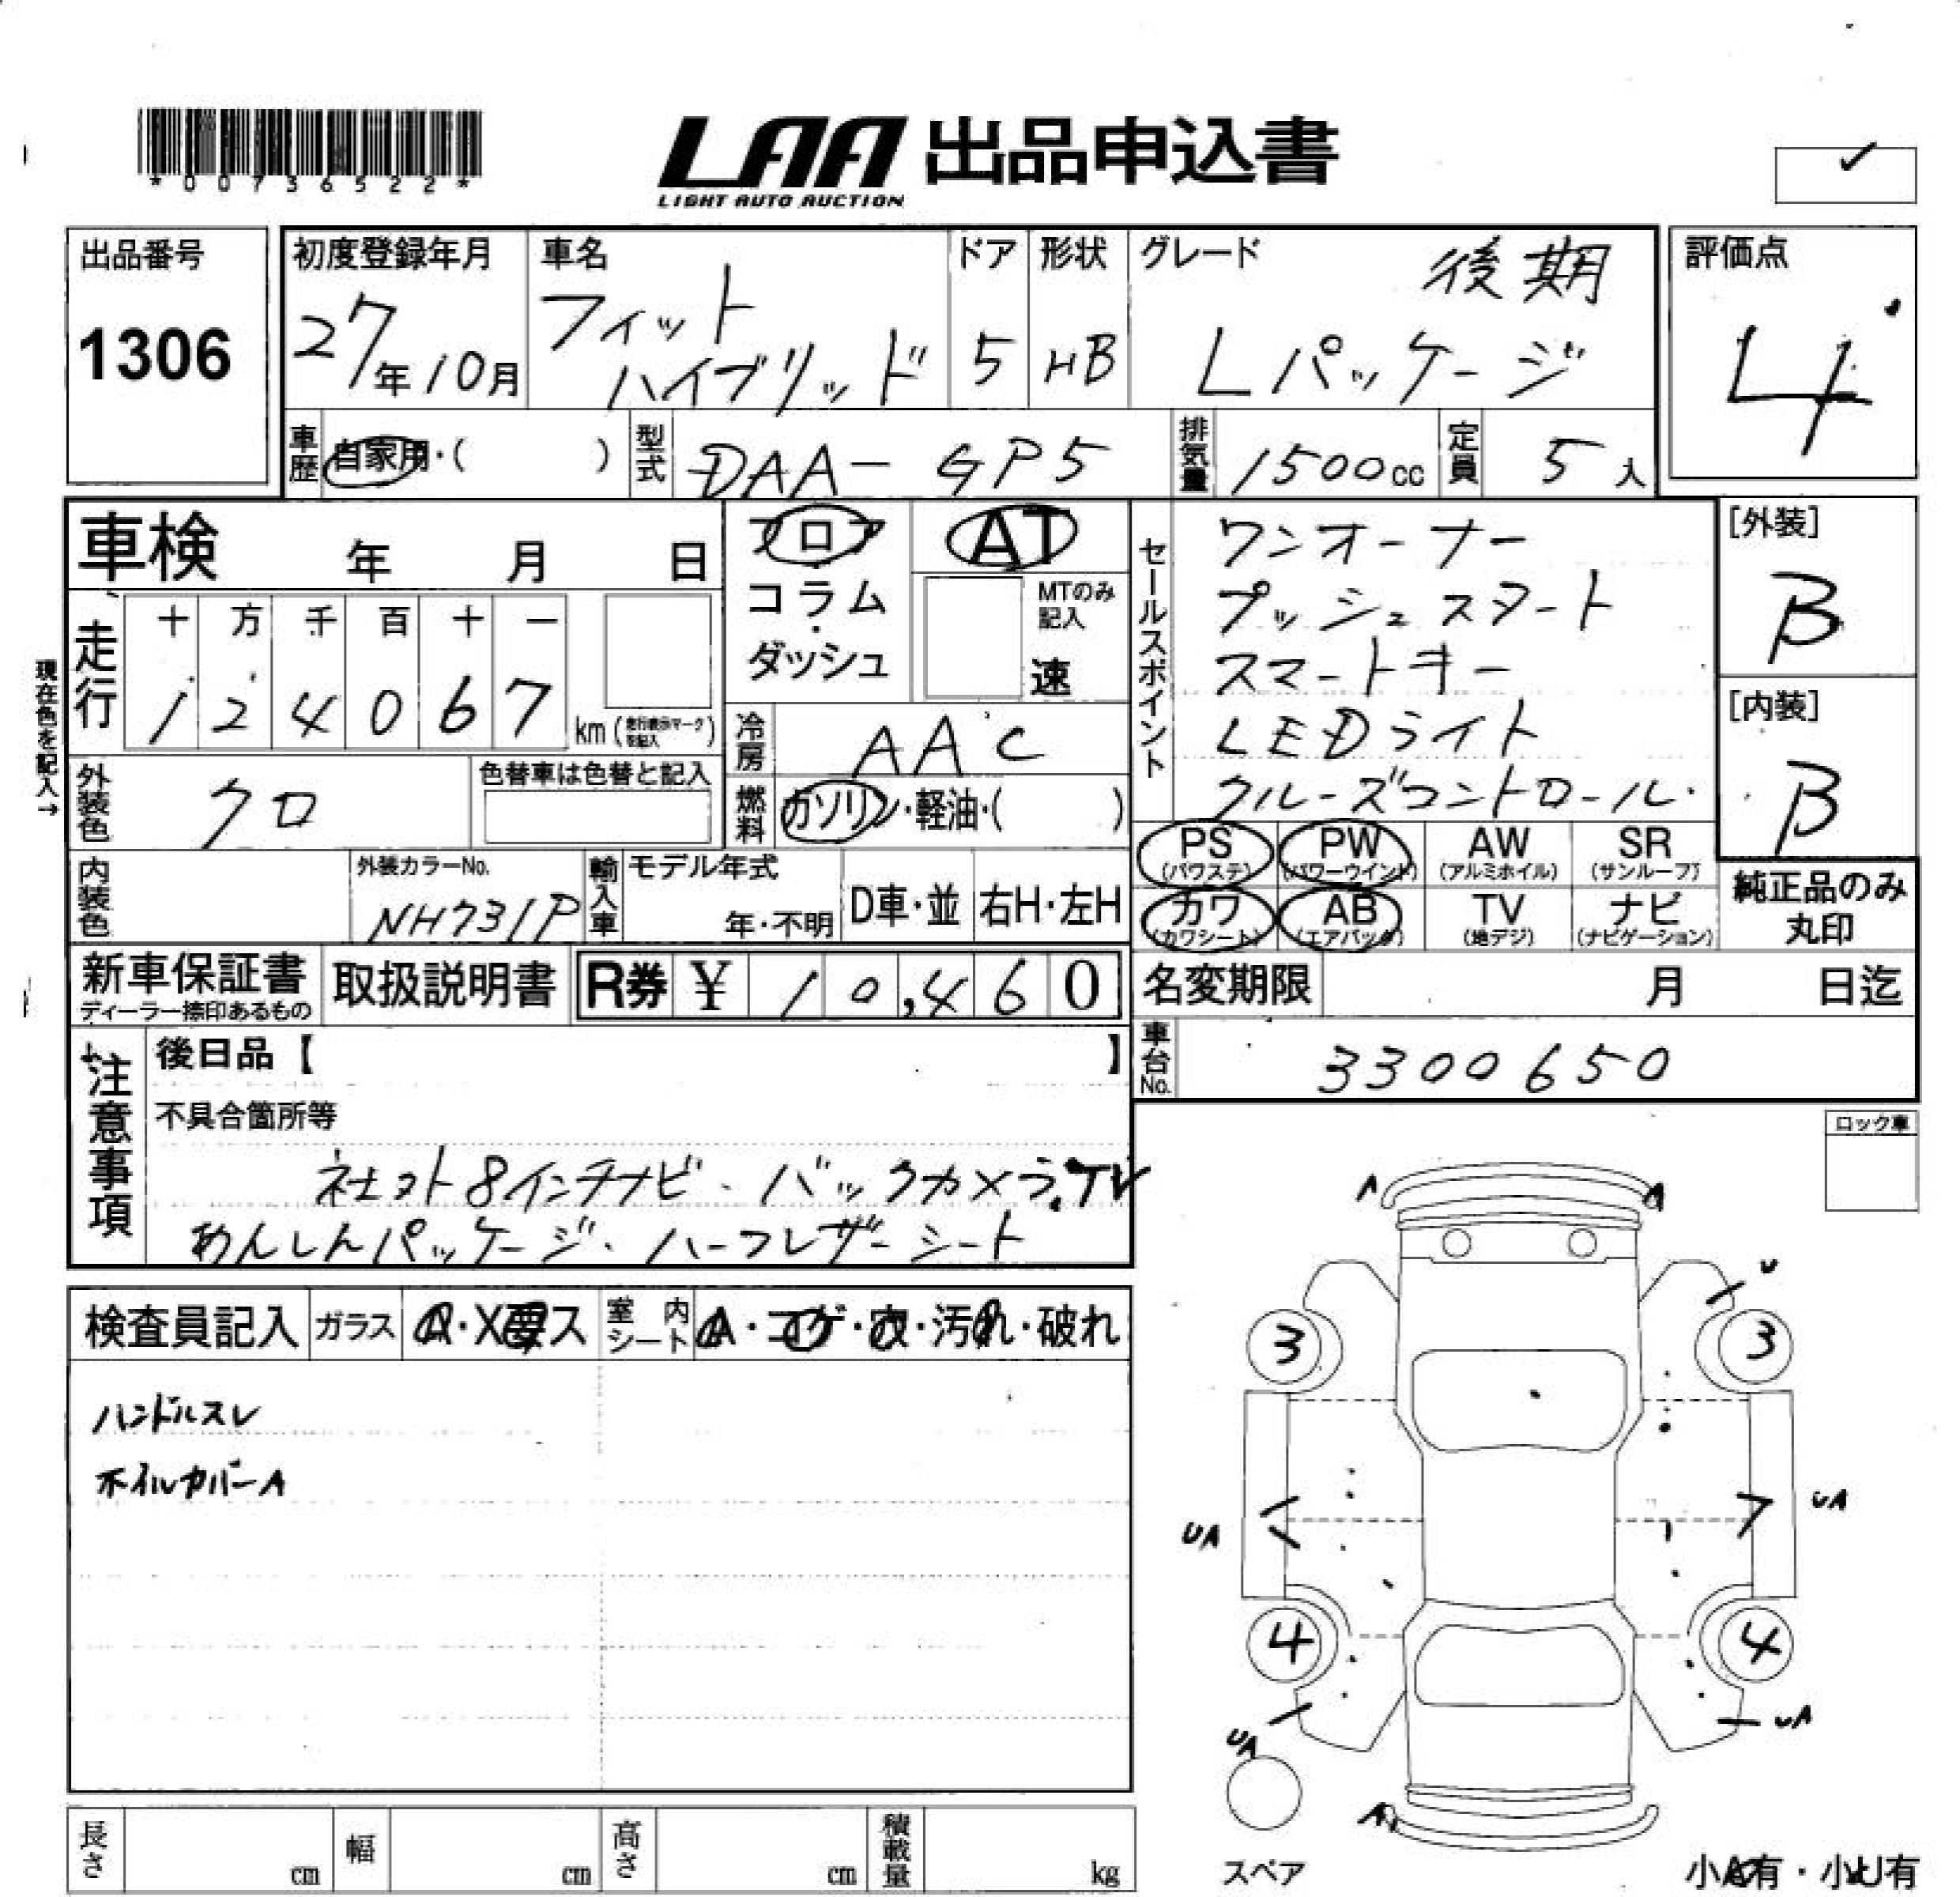 *00736522*
LAA 出品申込書
LIGHT AUTO AUCTION
出品番号
1306
初度登録年月
27年10月
車名
フィット
ハイブリッド
ドア
5
形状
HB
グレード
後期
Lパッケージ
評価点
4
車歴 自家用・( )
型式 DAA-GP5
排気量 1500cc
定員 5人
車検 年 月 日
フロア
コラム
・
ダッシュ
AT
MTのみ
記入
速
セールスポイント
ワンオーナー
プッシュスタート
スマートキー
LEDライト
クルーズコントロール
[外装]
B
[内装]
B
現在色を記入→
走行
十 万 千 百 十 一
1 2 4 0 6 7
km(走行表示マークを記入)
冷房 AAC
外装色 クロ
色替車は色替と記入
燃料 ガソリン・軽油・( )
PS AW SR PW
(パワステ) (パワーウインド) (アルミホイル) (サンルーフ)
カワ AB TV ナビ
(カワシート) (エアバック) (地デジ) (ナビゲーション)
純正品のみ
丸印
内装色
外装カラーNo.
NH731P
輸入車
モデル年式
年・不明
D車・並
右H・左H
新車保証書
ディーラー捺印あるもの
取扱説明書
R券 ¥ 10,460
名変期限 月 日迄
車台No. 3300650
注意事項
後日品【 】
不具合箇所等
社外8インチナビ・バックカメラ.TV
あんしんパッケージ・ハーフレザーシート
ロック車
検査員記入
ガラス A・X要ス
室内シート A・コゲ・穴・汚れ・破れ
ハンドルスレ
ホイルカバーA
A A
U
3 3
UA UA
4 4
UA UA
A
スペア
小A有・小U有
長さ cm
幅 cm
高さ cm
積載量 kg